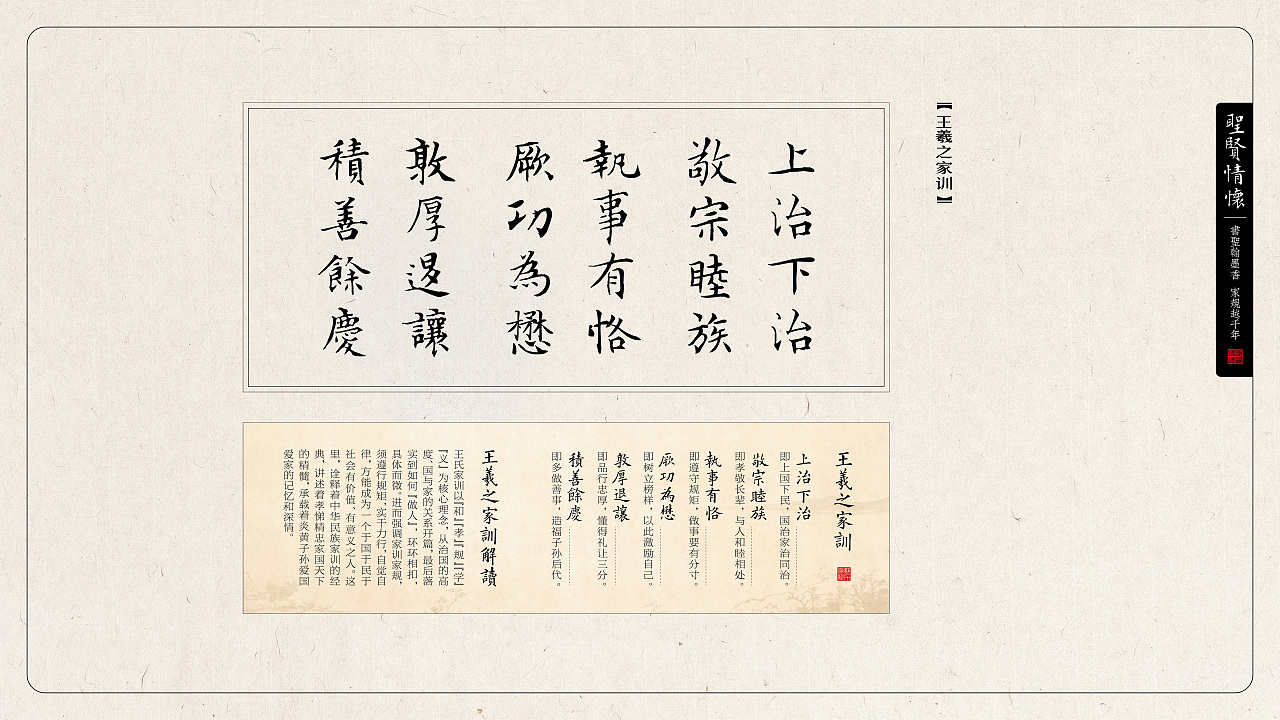 聖賢情懷
書聖翰墨香 家規越千年
【王羲之家训】
上治下治
敬宗睦族
執事有恪
厥功為懋
敦厚退讓
積善餘慶
王羲之家訓
上治下治
即上国下民，国治家治同治。
敬宗睦族
即孝敬长辈，与人和睦相处。
執事有恪
即遵守规矩，做事要有分寸。
厥功為懋
即树立榜样，以此激励自己。
敦厚退讓
即品行忠厚，懂得礼让三分。
積善餘慶
即多做善事，造福子孙后代。
王羲之家訓解讀
王氏家训以『和』『孝』『规』『学』
『义』为核心理念，从治国的高
度，国与家的关系开篇，最后落
实到如何『做人』，环环相扣，
具体而微。进而强调家训家规，
须遵行规矩，实干力行，自觉自
律，方能成为一个于国于民于
社会有价值、有意义之人。这
里，诠释着中华民族家训的经
典，讲述着孝悌精忠家国天下
的精髓，承载着炎黄子孙爱国
爱家的记忆和深情。